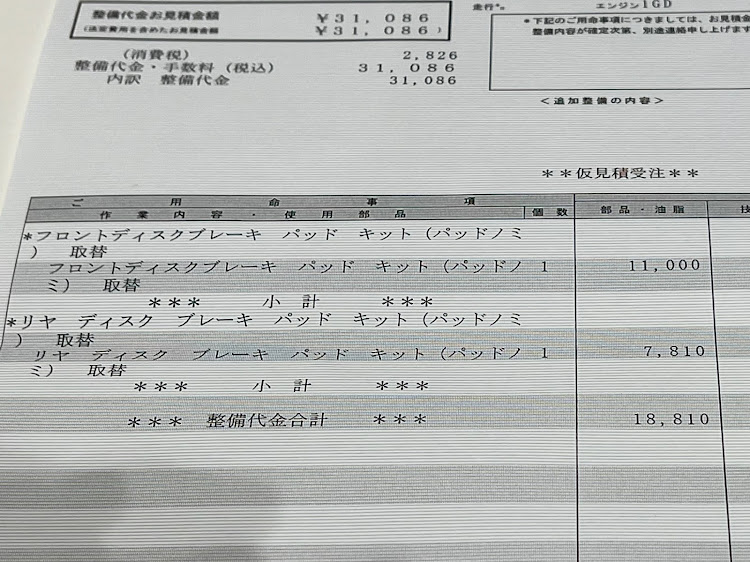 走行
エンジン1GD
整備代金お見積金額 ￥31,086
(法定費用を含めたお見積金額 ￥31,086)
*下記のご用命事項につきましては、お見積金
整備内容が確定次第、別途連絡申し上げます
(消費税) 2,826
整備代金・手数料(税込) 31,086
内訳 整備代金 31,086
<追加整備の内容>
**仮見積受注**
ご用命事項
作業内容・使用部品 個数 部品・油脂 技
*フロントディスクブレーキ パッド キット(パッドノミ
) 取替
フロントディスクブレーキ パッド キット(パッドノ 1 11,000
ミ) 取替
*** 小計 ***
*リヤ ディスク ブレーキ パッド キット(パッドノミ
) 取替
リヤ ディスク ブレーキ パッド キット(パッドノ 1 7,810
ミ) 取替
*** 小計 ***
*** 整備代金合計 *** 18,810